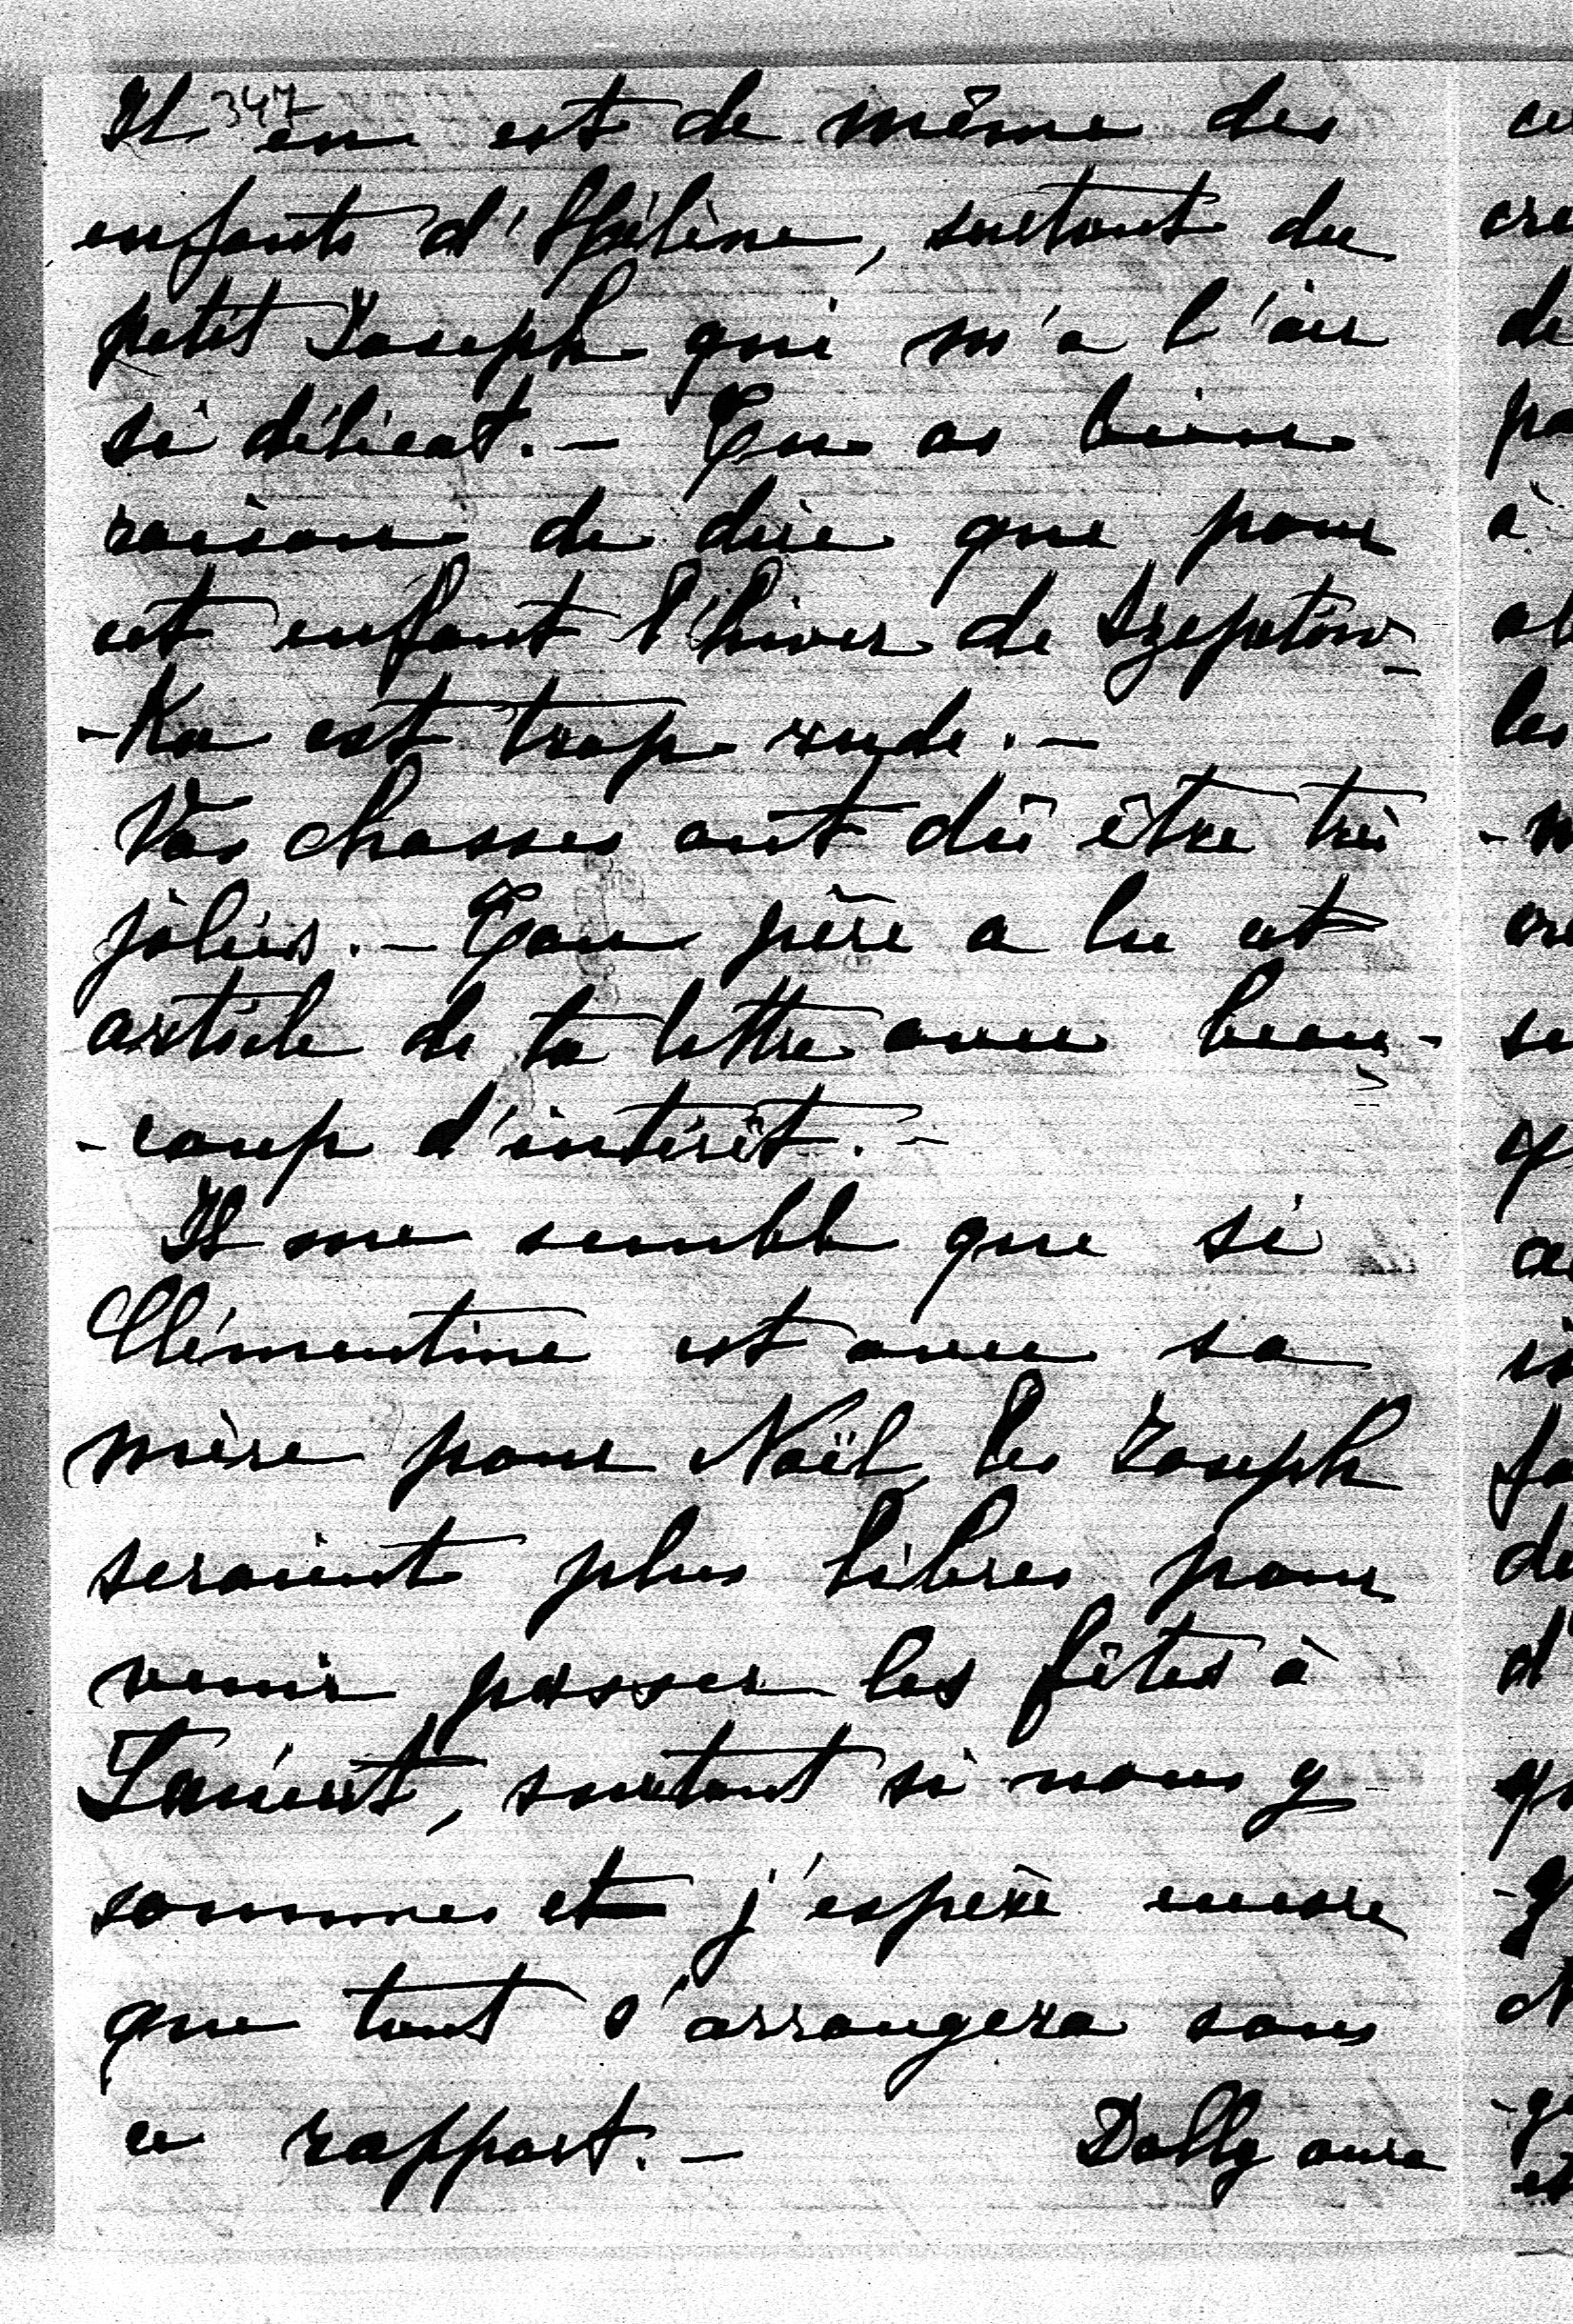 347
Il en est de même des
enfants d'Hélène, surtout du
petit Joseph qui m'a l'air
si délicat. – Tu as bien
raison de dire que pour
cet enfant l'hiver de Szepetow-
-Ka est trop rude. –
Vos chasses ont dû être très
jolies. – Ton père a lu cet
article de ta lettre avec beau-
-coup d'intérêt. –
Il me semble que si
Clémentine est avec sa
mère pour Noël, les Joseph
seraient plus libres pour
venir passer les fêtes à
Łańcut, surtout si nous y
sommes et j'espère encore
que tout s'arrangera sous
ce rapport. – Dolly aura